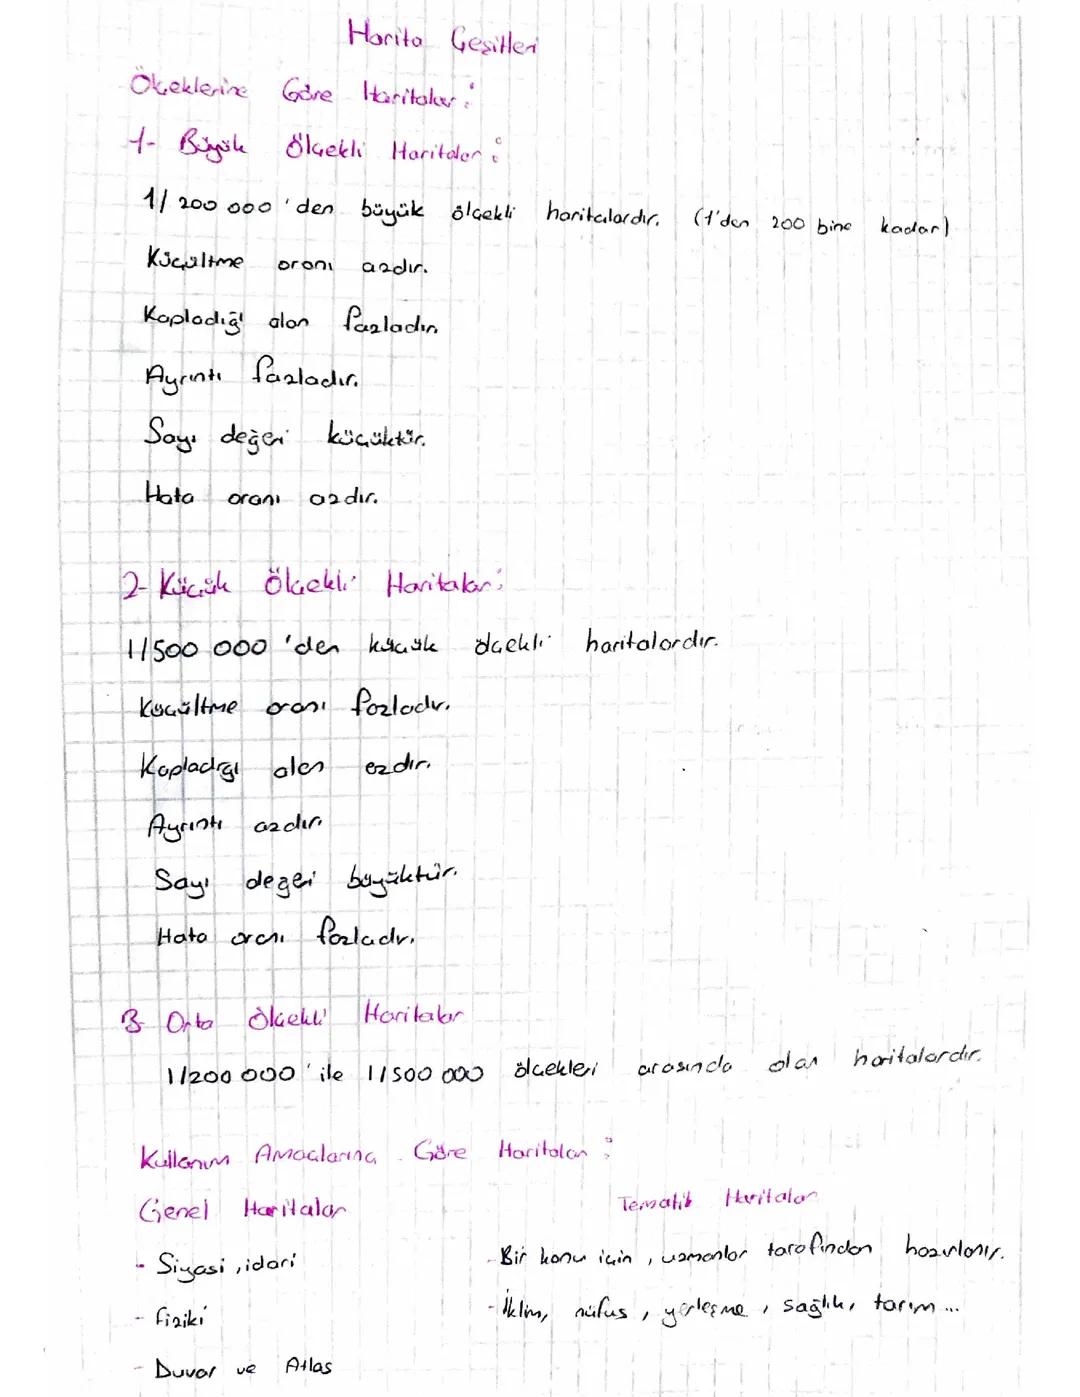 Harita Çeşitleri
Ölçeklerine Göre Haritalar:
1- Büyük Ölçekli Haritalar:
1/200 000'den büyük ölçekli haritalardır. (1'den 200 bine kadar)
Küçültme oranı azdır.
Kapladığı alan fazladır.
Ayrıntı fazladır.
Sayı değeri küçüktür.
Hata oranı azdır.
2- Küçük Ölçekli Haritalar:
1/500 000'den küçük ölçekli haritalardır.
Küçültme oranı fazladır.
Kapladığı alan azdır.
Ayrıntı azdır
Sayı değeri büyüktür.
Hata oranı fazladır.
3- Orta Ölçekli Haritalar
1/200 000' ile 1/500 000 ölçekleri arasında olan haritalardır.
Kullanım Amaçlarına Göre Haritalar:
Genel Haritalar
- Siyasi, idari
- Fiziki
- Duvar ve Atlas
Tematik Haritalar
- Bir konu için, uzmanlar tarafından hazırlanır.
- İklim, nüfus, yerleşme, sağlık, tarım...